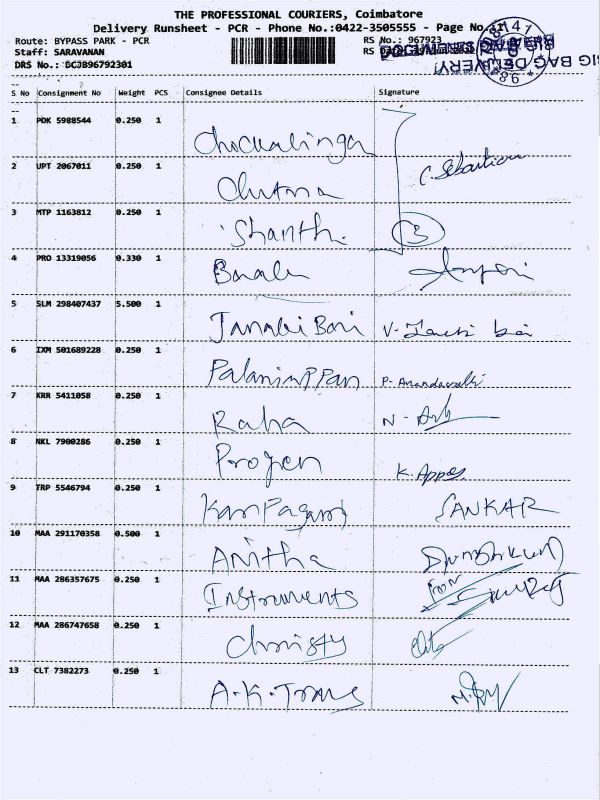 THE PROFESSIONAL COURIERS, Coimbatore
Delivery Runsheet - PCR - Phone No.:0422-3505555 - Page No.
Route: BYPASS PARK - PCR RS No.: 967923
Staff: SARAVANAN RS
DRS No.: DCJB96792301 BIG BAG DELIVERY!
S No Consignment No Weight PCS Consignee Details Signature
1 PDK 5988544 0.250 1 Chockalinga
2 UPT 2067011 0.250 1 C. Sebastian
3 MTP 1163812 0.250 1 Shanth. 3
4 PRO 13319056 0.330 1
5 SLM 298407437 5.500 1 Janaki Bari V-
6 IXM 501689228 0.250 1 Palaniappan P- Anandavalli
7 KRR 5411058 0.250 1 Raha N-
8 NKL 7900286 0.250 1 K. Appas
9 TRP 5546794 0.250 1 KarPagam SANKAR
10 MAA 291170358 0.500 1 Anitha
11 MAA 286357675 0.250 1 Instruments
12 MAA 286747658 0.250 1 Christy
13 CLT 7382273 0.250 1 A.K.Trans